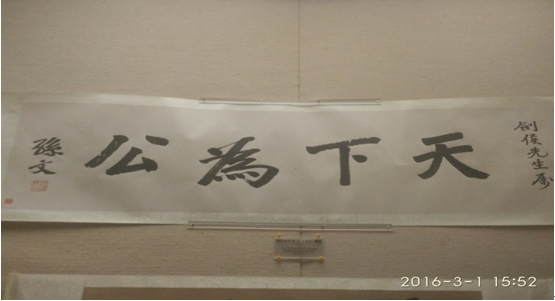 劍侯先生屬
天下為公
孫文
2016-3-1 15:52